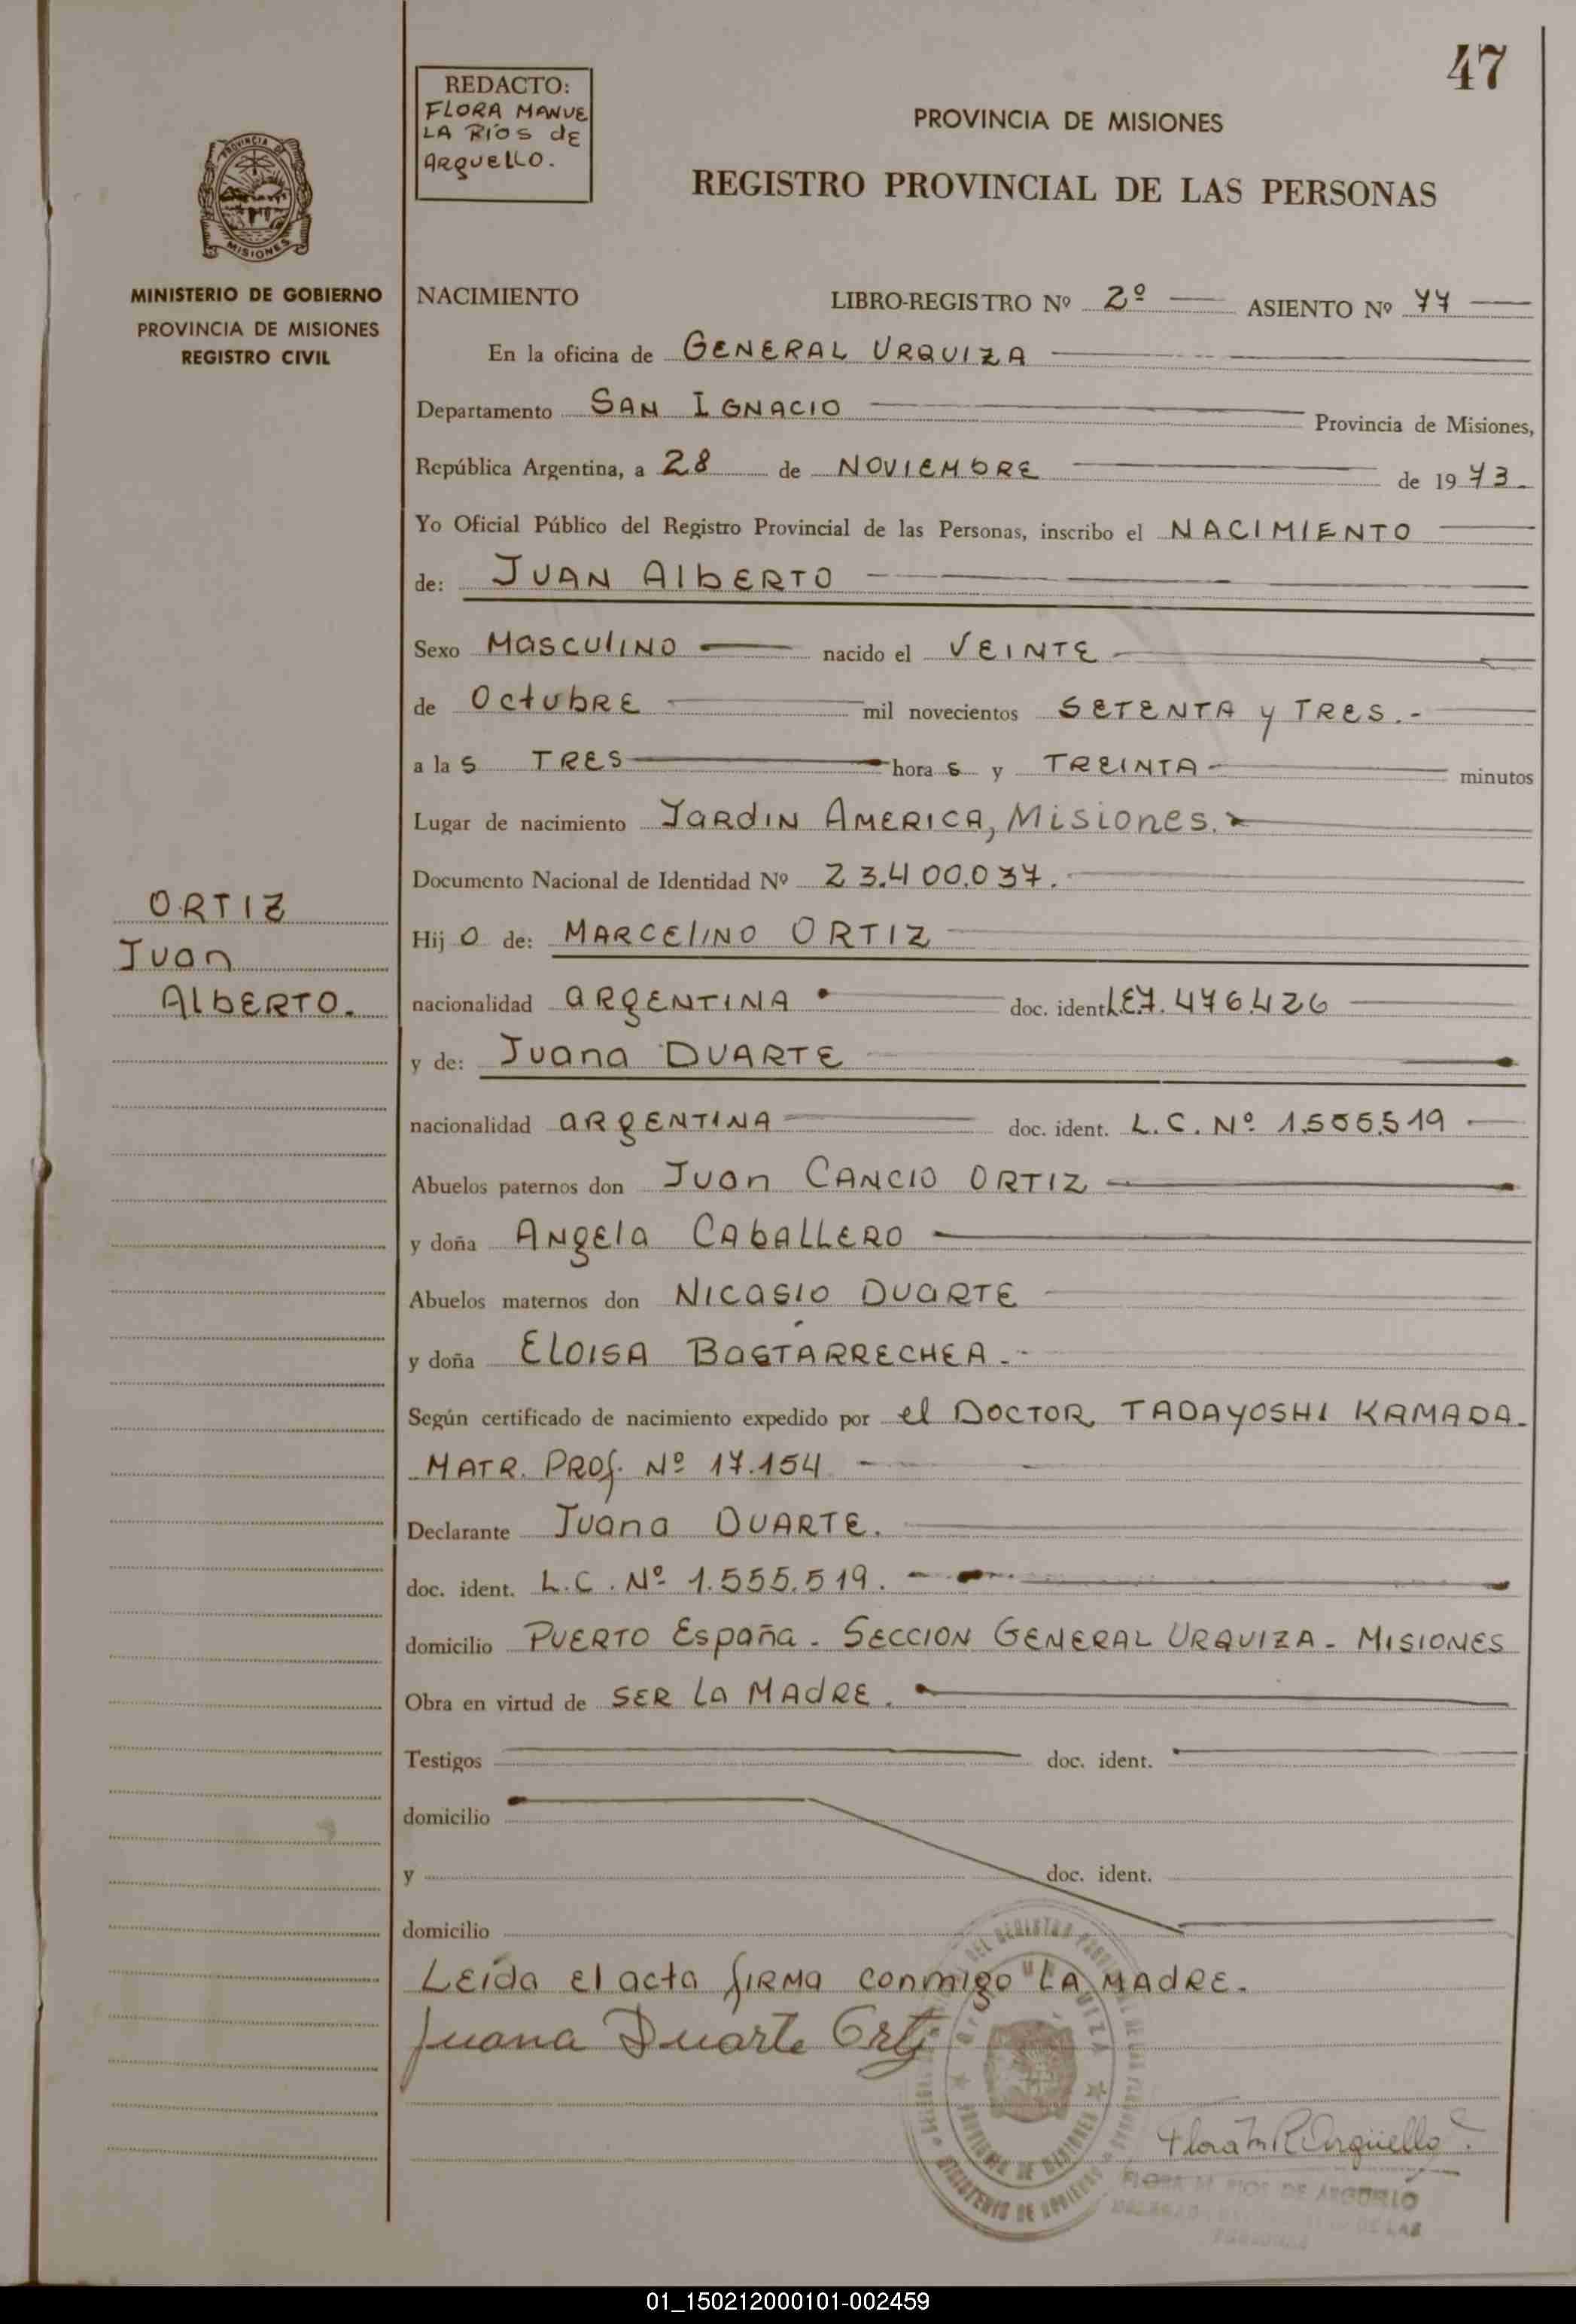 47
REDACTO:
FLORA MANUE
LA RÍOS de
ARguELLO.
PROVINCIA DE MISIONES
REGISTRO PROVINCIAL DE LAS PERSONAS
PROVINCIA DE
MISIONES
MINISTERIO DE GOBIERNO
PROVINCIA DE MISIONES
REGISTRO CIVIL
NACIMIENTO LIBRO-REGISTRO Nº 2º ASIENTO Nº 77
En la oficina de GENERAL URQUIZA
Departamento SAN IGNACIO Provincia de Misiones,
República Argentina, a 28 de NOVIEMbRE de 1973.
Yo Oficial Público del Registro Provincial de las Personas, inscribo el NACIMIENTO
de: JUAN AlbERTO
Sexo MasculINO nacido el VEINTE
de OctubRE mil novecientos SETENTA y TRES.-
a las TRES horas y TREINTA minutos
Lugar de nacimiento JaRdIN AMERICA, Misiones.
Documento Nacional de Identidad Nº 23.400.037.
ORTIZ
Juan
AlbERTO.
Hijo de: MARCElINO ORTIZ
nacionalidad aRgENTINA doc. ident. L.E.7.476.426
y de: Juana DUARTE
nacionalidad aRgENTINA doc. ident. L.C. Nº 1.555.519
Abuelos paternos don Juan CANCIO ORTIZ
y doña ANgEla CAbALLERO
Abuelos maternos don NIcasio DUaRTE
y doña ELOISA BaSTARRECHEA.-
Según certificado de nacimiento expedido por el DOCTOR TADAYOSHI KAMADA-
MATR. PROf. Nº 17.154
Declarante Juana DUARTE.
doc. ident. L.C. Nº 1.555.519.
domicilio PUERTO España - SECCION GENERAL URQUIZA - MISIONES
Obra en virtud de SER La MAdRE.
Testigos doc. ident.
domicilio
y doc. ident.
domicilio
LEída el acta fIRMa conmigo LA MAdRE.
Juana Duarte Ortiz
Flora M R Arguello
FLORA M. RIOS DE ARGUELLO
01_150212000101-002459